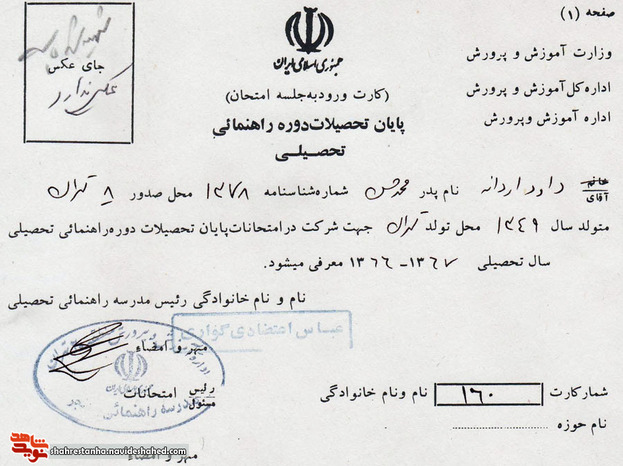 صفحه (۱)
وزارت آموزش و پرورش
اداره کل آموزش و پرورش
اداره آموزش وپرورش
جمهوری اسلامی ایران
(کارت ورود به جلسه امتحان)
پایان تحصیلات دوره راهنمائی
تحصیلی
جای عکس
عکس ندارد
خانم
آقای داود اردانه نام پدر محمدحسن شماره شناسنامه ۱۳۷۸ محل صدور ۸ تهران
متولد سال ۱۳۴۹ محل تولد تهران جهت شرکت در امتحانات پایان تحصیلات دوره راهنمائی تحصیلی
سال تحصیلی ۱۳۶۷-۱۳۶۶ معرفی میشود.
نام و نام خانوادگی رئیس مدرسه راهنمائی تحصیلی
عباس اعتقادی گواری
مهر و امضاء
رئیس
مسئول امتحانات
مدرسه راهنمائی
شماره کارت ۱۶۰ نام ونام خانوادگی
نام حوزه
مهر و امضاء
شاهد
نوید
shahrestanha.navideshahed.com